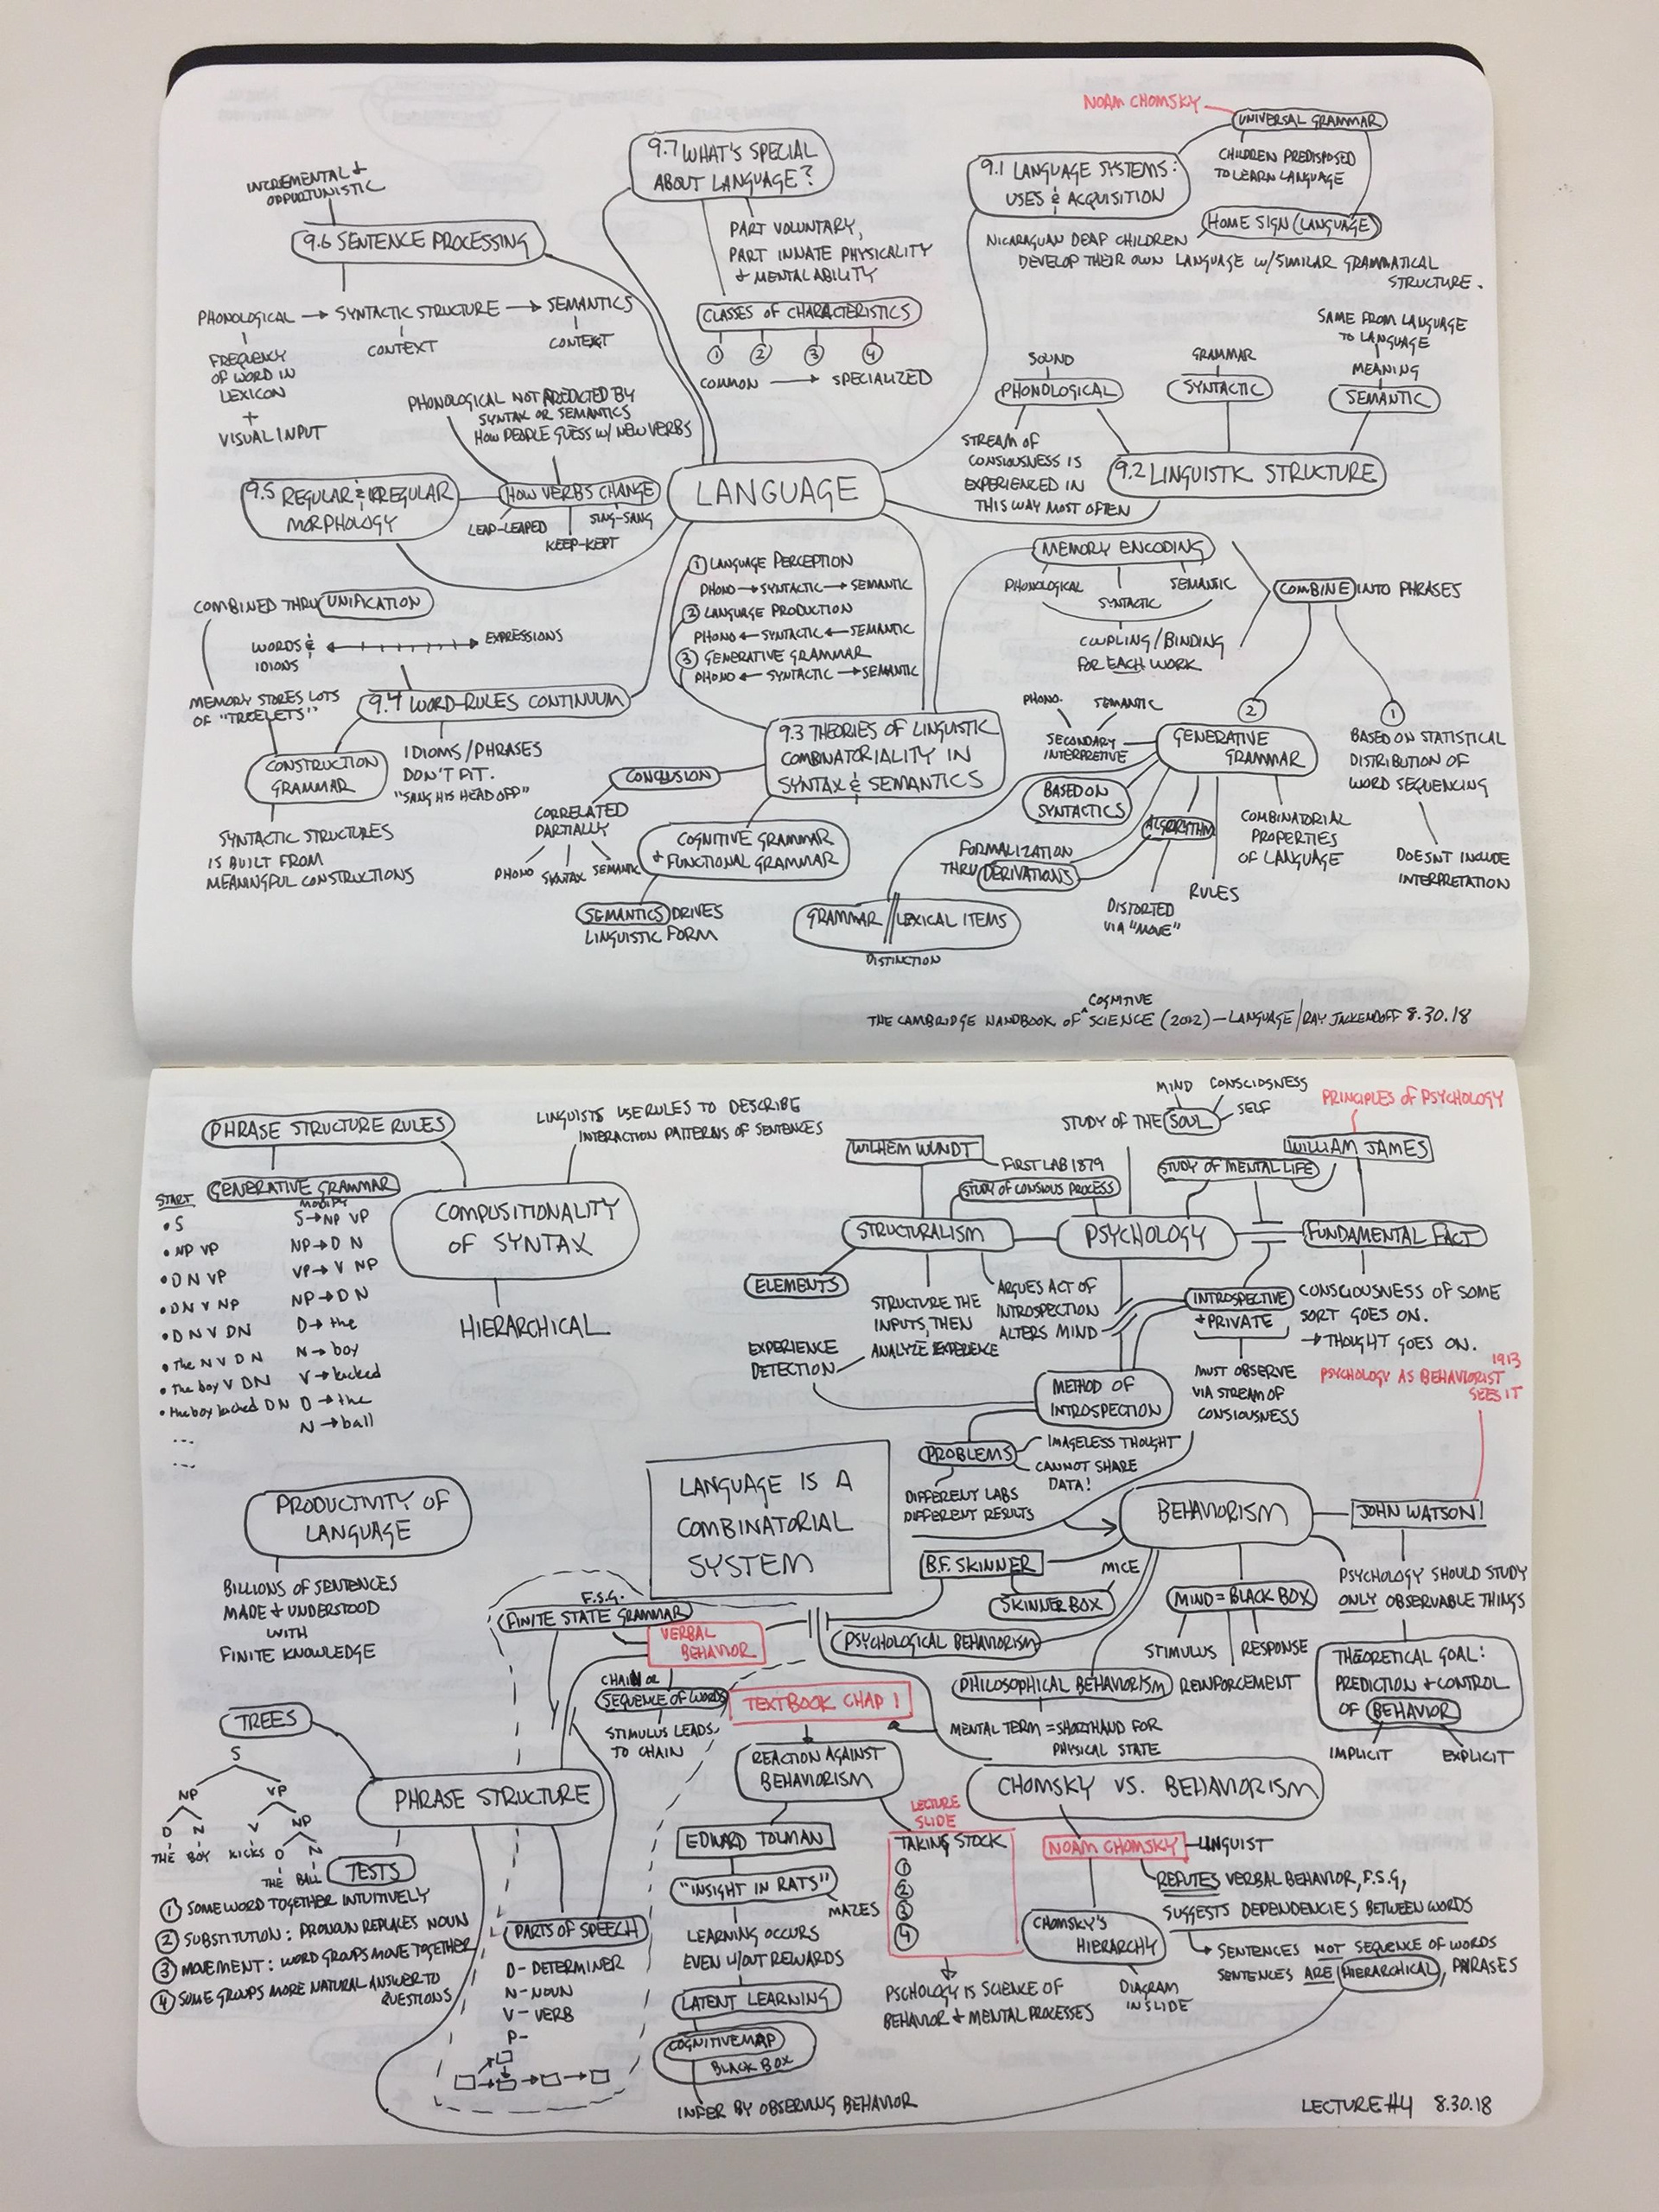 NOAM CHOMSKY
UNIVERSAL GRAMMAR
CHILDREN PREDISPOSED
TO LEARN LANGUAGE
9.1 LANGUAGE SYSTEMS:
USES & ACQUISITION
HOME SIGN (LANGUAGE)
NICARAGUAN DEAF CHILDREN
DEVELOP THEIR OWN LANGUAGE W/SIMILAR GRAMMATICAL
STRUCTURE.
9.7 WHAT'S SPECIAL
ABOUT LANGUAGE?
PART VOLUNTARY,
PART INNATE PHYSICALITY
+ MENTAL ABILITY
CLASSES OF CHARACTERISTICS
1 2 3 4
COMMON → SPECIALIZED
INCREMENTAL +
OPPORTUNISTIC
9.6 SENTENCE PROCESSING
PHONOLOGICAL → SYNTACTIC STRUCTURE → SEMANTICS
FREQUENCY
OF WORD IN
LEXICON
+
VISUAL INPUT
CONTEXT
CONTEXT
PHONOLOGICAL NOT PREDICTED BY
SYNTAX OR SEMANTICS
HOW PEOPLE GUESS W/ NEW VERBS
9.5 REGULAR & IRREGULAR
MORPHOLOGY
HOW VERBS CHANGE
LEAP-LEAPED
KEEP-KEPT
SING-SANG
LANGUAGE
SOUND
PHONOLOGICAL
GRAMMAR
SYNTACTIC
SAME FROM LANGUAGE
TO LANGUAGE
MEANING
SEMANTIC
STREAM OF
CONSIOUSNESS IS
EXPERIENCED IN
THIS WAY MOST OFTEN
9.2 LINGUISTIC STRUCTURE
1 LANGUAGE PERCEPTION
PHONO → SYNTACTIC → SEMANTIC
2 LANGUAGE PRODUCTION
PHONO ← SYNTACTIC ← SEMANTIC
3 GENERATIVE GRAMMAR
PHONO ← SYNTACTIC → SEMANTIC
MEMORY ENCODING
PHONOLOGICAL
SYNTACTIC
SEMANTIC
COUPLING/BINDING
FOR EACH WORK
COMBINE INTO PHRASES
COMBINED THRU UNIFICATION
WORDS &
IDIONS
EXPRESSIONS
MEMORY STORES LOTS
OF "TREELETS"
9.4 WORD-RULES CONTINUUM
CONSTRUCTION
GRAMMAR
IDIOMS/PHRASES
DON'T FIT.
"SANG HIS HEAD OFF"
SYNTACTIC STRUCTURES
IS BUILT FROM
MEANINGFUL CONSTRUCTIONS
9.3 THEORIES OF LINGUISTIC
COMBINATORIALITY IN
SYNTAX & SEMANTICS
CONCLUSION
CORRELATED
PARTIALLY
PHONO SYNTAX SEMANTIC
COGNITIVE GRAMMAR
+ FUNCTIONAL GRAMMAR
SEMANTICS DRIVES
LINGUISTIC FORM
PHONO. SEMANTIC
SECONDARY
INTERPRETIVE
2
GENERATIVE
GRAMMAR
BASED ON
SYNTACTICS
ALGORYTHM
FORMALIZATION
THRU DERIVATIONS
DISTORTED
VIA "MOVE"
RULES
COMBINATORIAL
PROPERTIES
OF LANGUAGE
1
BASED ON STATISTICAL
DISTRIBUTION OF
WORD SEQUENCING
DOESN'T INCLUDE
INTERPRETATION
GRAMMAR // LEXICAL ITEMS
DISTINCTION
COGNITIVE
THE CAMBRIDGE HANDBOOK OF ^ SCIENCE (2012) — LANGUAGE/RAY JACKENDOFF 8.30.18
PHRASE STRUCTURE RULES
LINGUISTS USE RULES TO DESCRIBE
INTERACTION PATTERNS OF SENTENCES
START
GENERATIVE GRAMMAR
MODIFY
• S
S → NP VP
• NP VP
NP → D N
• D N VP
VP → V NP
• D N V NP
NP → D N
• D N V D N
D → the
• The N V D N
N → boy
• The boy V D N
V → kicked
• the boy kicked D N
D → the
N → ball
...
...
COMPUSITIONALITY
OF SYNTAX
HIERARCHICAL
PRODUCTIVITY OF
LANGUAGE
BILLIONS OF SENTENCES
MADE + UNDERSTOOD
WITH
FINITE KNOWLEDGE
LANGUAGE IS A
COMBINATORIAL
SYSTEM
MIND CONSCIOSNESS
SELF
STUDY OF THE SOUL
PRINCIPLES OF PSYCHOLOGY
WILLIAM JAMES
WILHEM WUNDT
FIRST LAB 1879
STUDY OF CONSIOUS PROCESS
STUDY OF MENTAL LIFE
STRUCTURALISM
PSYCHOLOGY
FUNDAMENTAL FACT
ELEMENTS
STRUCTURE THE
INPUTS, THEN
ANALYZE EXPERIENCE
ARGUES ACT OF
INTROSPECTION
ALTERS MIND
EXPERIENCE
DETECTION
INTROSPECTIVE
+ PRIVATE
MUST OBSERVE
VIA STREAM OF
CONSIOUSNESS
CONSCIOUSNESS OF SOME
SORT GOES ON.
→ THOUGHT GOES ON.
METHOD OF
INTROSPECTION
PROBLEMS
IMAGELESS THOUGHT
CANNOT SHARE
DATA!
DIFFERENT LABS
DIFFERENT RESULTS
1913
PSYCHOLOGY AS BEHAVIORIST
SEES IT
BEHAVIORISM
JOHN WATSON
B.F. SKINNER
MICE
SKINNER BOX
MIND = BLACK BOX
STIMULUS
RESPONSE
REINFORCEMENT
PSYCHOLOGY SHOULD STUDY
ONLY OBSERVABLE THINGS
THEORETICAL GOAL:
PREDICTION + CONTROL
OF BEHAVIOR
IMPLICIT
EXPLICIT
PSYCHOLOGICAL BEHAVIORISM
PHILOSOPHICAL BEHAVIORISM
MENTAL TERM = SHORTHAND FOR
PHYSICAL STATE
F.S.G.
FINITE STATE GRAMMAR
VERBAL
BEHAVIOR
CHAIN OR
SEQUENCE OF WORDS
STIMULUS LEADS
TO CHAIN
TEXTBOOK CHAP 1
REACTION AGAINST
BEHAVIORISM
EDWARD TOLMAN
"INSIGHT IN RATS"
MAZES
LEARNING OCCURS
EVEN W/OUT REWARDS
LATENT LEARNING
COGNITIVE MAP
BLACK BOX
INFER BY OBSERVING BEHAVIOR
LECTURE
SLIDE
TAKING STOCK
1
2
3
4
PSCHOLOGY IS SCIENCE OF
BEHAVIOR + MENTAL PROCESSES
CHOMSKY VS. BEHAVIORISM
NOAM CHOMSKY
LINGUIST
REFUTES VERBAL BEHAVIOR, F.S.G,
SUGGESTS DEPENDENCIES BETWEEN WORDS
SENTENCES NOT SEQUENCE OF WORDS
SENTENCES ARE HIERARCHICAL, PHRASES
CHOMSKY'S
HIERARCHY
DIAGRAM
IN SLIDE
TREES
S
NP VP
D N V NP
THE BOY KICKS D N
THE BALL
PHRASE STRUCTURE
TESTS
1 SOME WORD TOGETHER INTUITIVELY
2 SUBSTITUTION: PRONOUN REPLACES NOUN
3 MOVEMENT: WORD GROUPS MOVE TOGETHER
4 SOME GROUPS MORE NATURAL ANSWER TO
QUESTIONS
PARTS OF SPEECH
D - DETERMINER
N - NOUN
V - VERB
P -
LECTURE #4 8.30.18